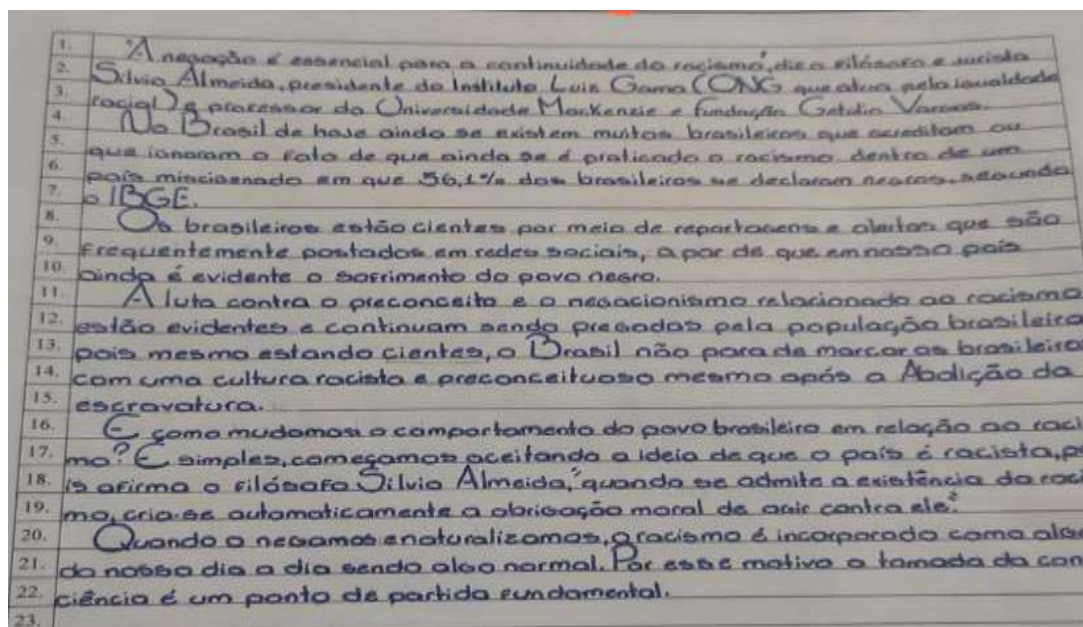 1. "A negação é essencial para a continuidade do racismo", diz o filósofo e jurista
2. Silvio Almeida, presidente do Instituto Luiz Gama (ONG que atua pela igualdade
3. racial) e processor da Universidade Mackenzie e Fundação Getulio Vargas.
4. No Brasil de hoje ainda se existem muitos brasileiros que acreditam ou
5. que ignoram o fato de que ainda se é praticado o racismo dentro de um
6. país miscigenado em que 56,1% dos brasileiros se declaram negros, segundo
7. o IBGE.
8. Os brasileiros estão cientes por meio de reportagens e alertas que são
9. frequentemente postados em redes sociais, a por de que em nosso país
10. ainda é evidente o sofrimento do povo negro.
11. A luta contra o preconceito e o negacionismo relacionado ao racismo
12. estão evidentes e continuam sendo pregados pela população brasileira
13. pois mesmo estando cientes, o Brasil não para de marcar os brasileiros
14. com uma cultura racista e preconceituosa mesmo após a Abolição da
15. escravatura.
16. E como mudamos o comportamento do povo brasileiro em relação ao raci
17. mo? É simples, começamos aceitando a ideia de que o país é racista, po
18. is afirma o filósofo Silvio Almeida, "quando se admite a existência do raci
19. mo, cria-se automaticamente a obrigação moral de agir contra ele".
20. Quando o negamos e naturalizamos, o racismo é incorporado como algo
21. do nosso dia a dia sendo algo normal. Por esse motivo a tomada da con
22. ciência é um ponto de partida fundamental.
23.